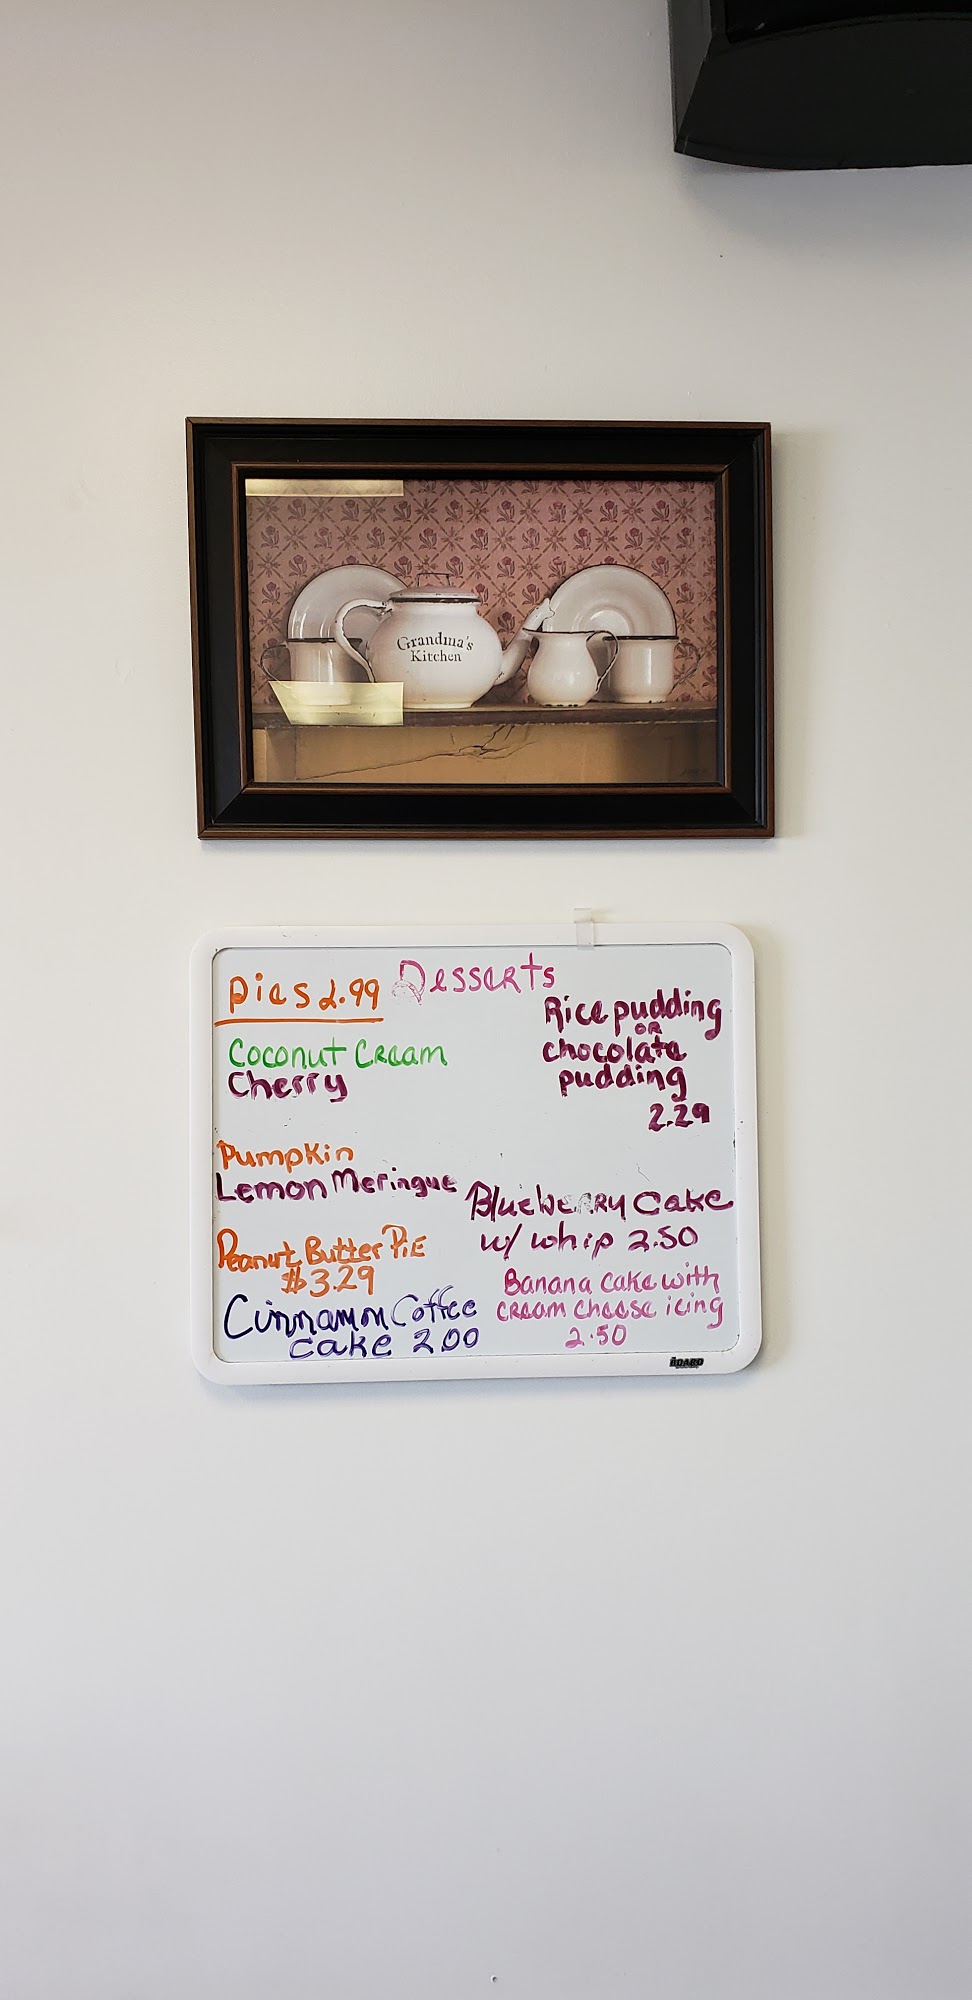 Grandma's
Kitchen
Desserts
Pies 2.99
Coconut Cream
Cherry
Pumpkin
Lemon Meringue
Peanut Butter PiE
$3.29
Cinnamon Coffee
cake 2.00
Rice pudding
OR
chocolate
pudding
2.29
Blueberry Cake
w/ whip 2.50
Banana cake with
cream cheese icing
2.50